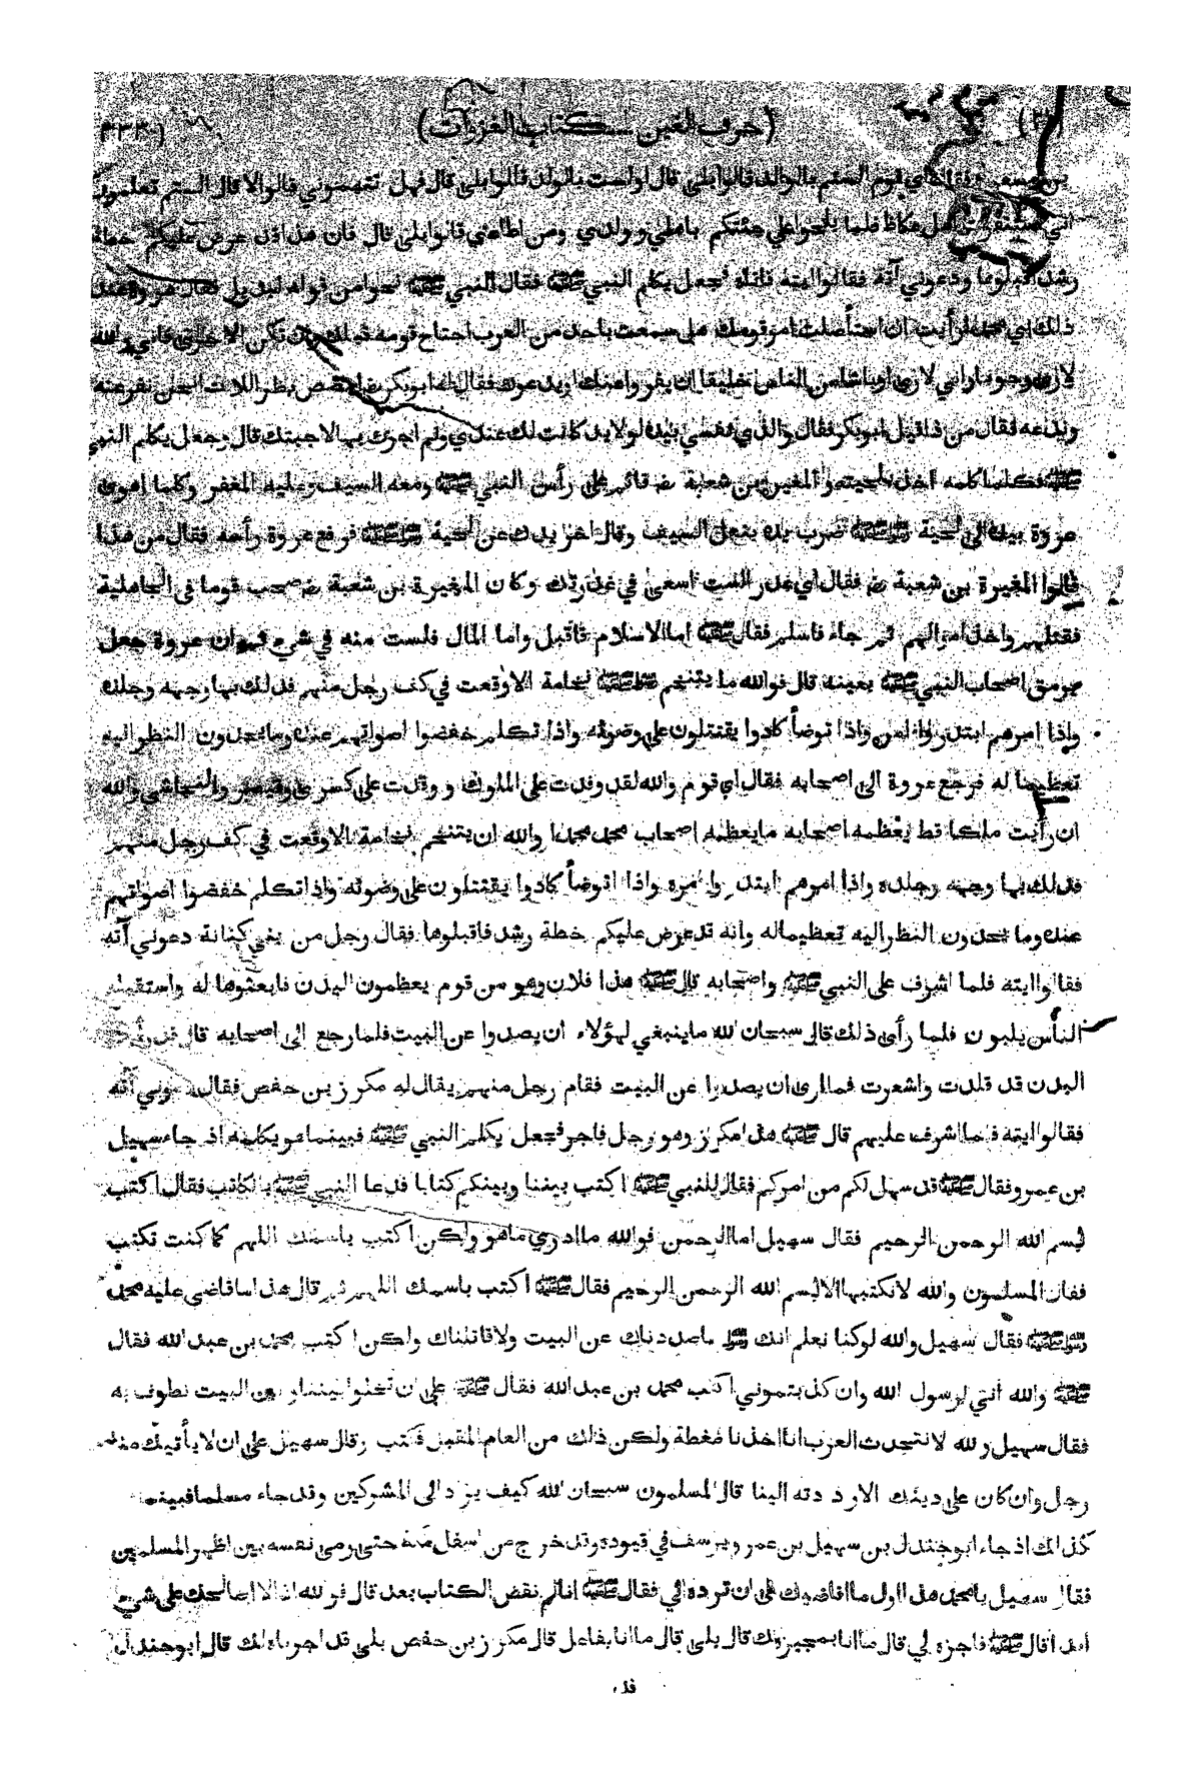 (حرف الغين كتاب الغزوات) ٣٣٣
فقال اي قوم الستم بالوالد قالوا بلى قال اولست بالولد قالوا بلى قال فهل تتهموني قالوا لا قال الستم تعلمون
اني استنفرت اهل عكاظ فلما بلحوا علي جئتكم باهلي وولدي ومن اطاعني قالوا بلى قال فان هذا قد عرض عليكم خطة
رشد اقبلوها ودعوني آته فقالوا ايته فاتاه فجعل يكلم النبي ﷺ فقال النبي ﷺ نحوا من قوله لبديل فقال عروة عند
ذلك اي محمد ارأيت ان استأصلت امر قومك هل سمعت باحد من العرب اجتاح قومه قبلك وان تكن الاخرى فاني والله
لارى وجوها واني لارى اوباشا من الناس خليقا ان يفروا عنك ويدعوك فقال له ابو بكر امصص بظر اللات انحن نفر عنه
وندعه فقال من ذا قيل ابو بكر فقال والذي نفسي بيده لولا يد كانت لك عندي ولم اجزك بها لاجبتك قال وجعل يكلم النبي
ﷺ فكلما كلمه اخذ بلحيته والمغيرة بن شعبة رض قائم على رأس النبي ﷺ ومعه السيف وعليه المغفر وكلما اهوى
عروة بيده الى لحية ﷺ ضرب يده بنعل السيف وقال اخر يدك عن لحية ﷺ فرفع عروة رأسه فقال من هذا
قالوا المغيرة بن شعبة رض فقال اي غدر الست اسعى في غدرتك وكان المغيرة بن شعبة رض صحب قوما في الجاهلية
فقتلهم واخذ اموالهم ثم جاء فاسلم فقال ﷺ اما الاسلام فاقبل واما المال فلست منه في شيء ثم ان عروة جعل
يرمق اصحاب النبي ﷺ بعينه قال فوالله ما يتنخم ﷺ نخامة الا وقعت في كف رجل منهم فدلك بها وجهه وجلده
واذا امرهم ابتدروا امره واذا توضأ كادوا يقتتلون على وضوئه واذا تكلم خفضوا اصواتهم عنده وما يحدون النظر اليه
تعظيما له فرجع عروة الى اصحابه فقال اي قوم والله لقد وفدت على الملوك ووفدت على كسرى وقيصر والنجاشي والله
ان رأيت ملكا قط يعظمه اصحابه ما يعظمه اصحاب محمد محمدا والله ان يتنخم نخامة الا وقعت في كف رجل منهم
فدلك بها وجهه وجلده واذا امرهم ابتدروا امره واذا توضأ كادوا يقتتلون على وضوئه واذا تكلم خفضوا اصواتهم
عنده وما يحدون النظر اليه تعظيما له وانه قد عرض عليكم خطة رشد فاقبلوها فقال رجل من بني كنانة دعوني آته
فقالوا ايته فلما اشرف على النبي ﷺ واصحابه قال ﷺ هذا فلان وهو من قوم يعظمون البدن فابعثوها له واستقبله
الناس يلبون فلما رأى ذلك قال سبحان الله ما ينبغي لهؤلاء ان يصدوا عن البيت فلما رجع الى اصحابه قال قد رأيت
البدن قد قلدت واشعرت فما ارى ان يصدوا عن البيت فقام رجل منهم يقال له مكرز بن حفص فقال دعوني آته
فقالوا ايته فلما اشرف عليهم قال ﷺ هذا مكرز وهو رجل فاجر فجعل يكلم النبي ﷺ فبينما هو يكلمه اذ جاء سهيل
بن عمرو فقال ﷺ قد سهل لكم من امركم فقال للنبي ﷺ اكتب بيننا وبينكم كتابا فدعا النبي ﷺ بالكاتب فقال اكتب
بسم الله الرحمن الرحيم فقال سهيل اما الرحمن فوالله ما ادري ما هو ولكن اكتب باسمك اللهم كما كنت تكتب
فقال المسلمون والله لا نكتبها الا بسم الله الرحمن الرحيم فقال ﷺ اكتب باسمك اللهم ثم قال هذا ما قاضى عليه محمد
رسول ﷺ فقال سهيل والله لو كنا نعلم انك رسول ما صددناك عن البيت ولا قاتلناك ولكن اكتب محمد بن عبد الله فقال
ﷺ والله انني لرسول الله وان كذبتموني اكتب محمد بن عبد الله فقال ﷺ على ان تخلوا بيننا وبين البيت نطوف به
فقال سهيل والله لا تتحدث العرب انا اخذنا ضغطة ولكن ذلك من العام المقبل فكتب وقال سهيل على ان لا يأتيك منا
رجل وان كان على دينك الا رددته الينا قال المسلمون سبحان الله كيف يرد الى المشركين وقد جاء مسلما فبينما
كذلك اذ جاء ابو جندل بن سهيل بن عمرو يرسف في قيوده وقد خرج من اسفل مكة حتى رمى نفسه بين اظهر المسلمين
فقال سهيل يا محمد هذا اول ما اقاضيك على ان ترده الي فقال ﷺ انا لم نقض الكتاب بعد قال فوالله اذا لا اصالحك على شيء
ابدا قال ﷺ فاجزه لي قال ما انا بمجيزه لك قال بلى قال ما انا بفاعل قال مكرز بن حفص بلى قد اجزناه لك قال ابو جندل